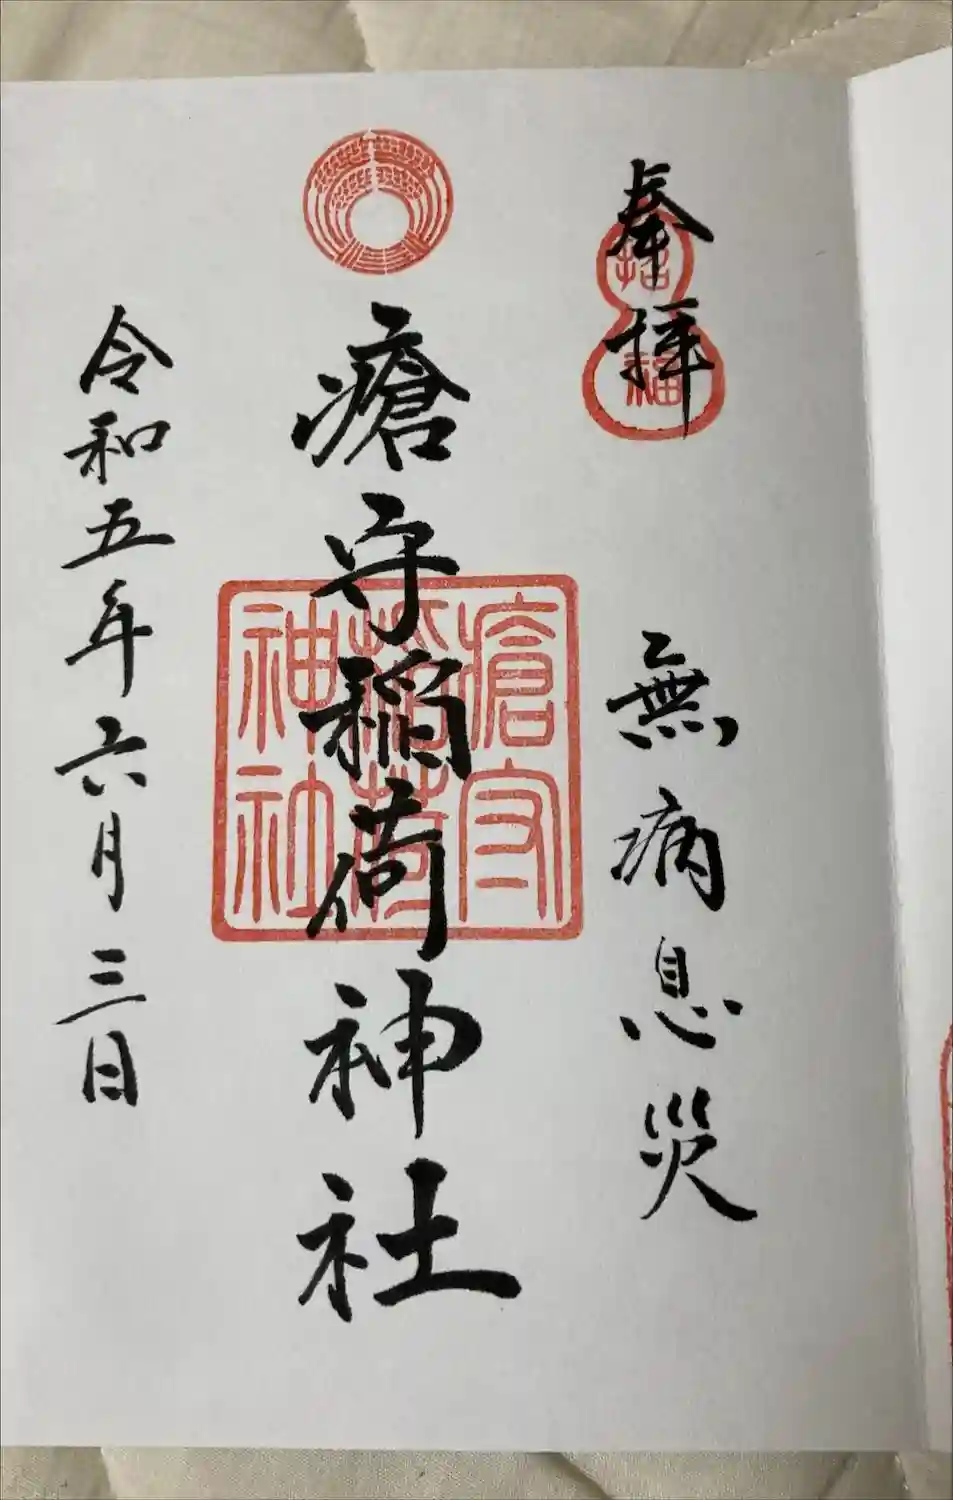 奉拝
招福
無病息災
瘡守稲荷神社
瘡守
稲荷
神社
令和五年六月三日